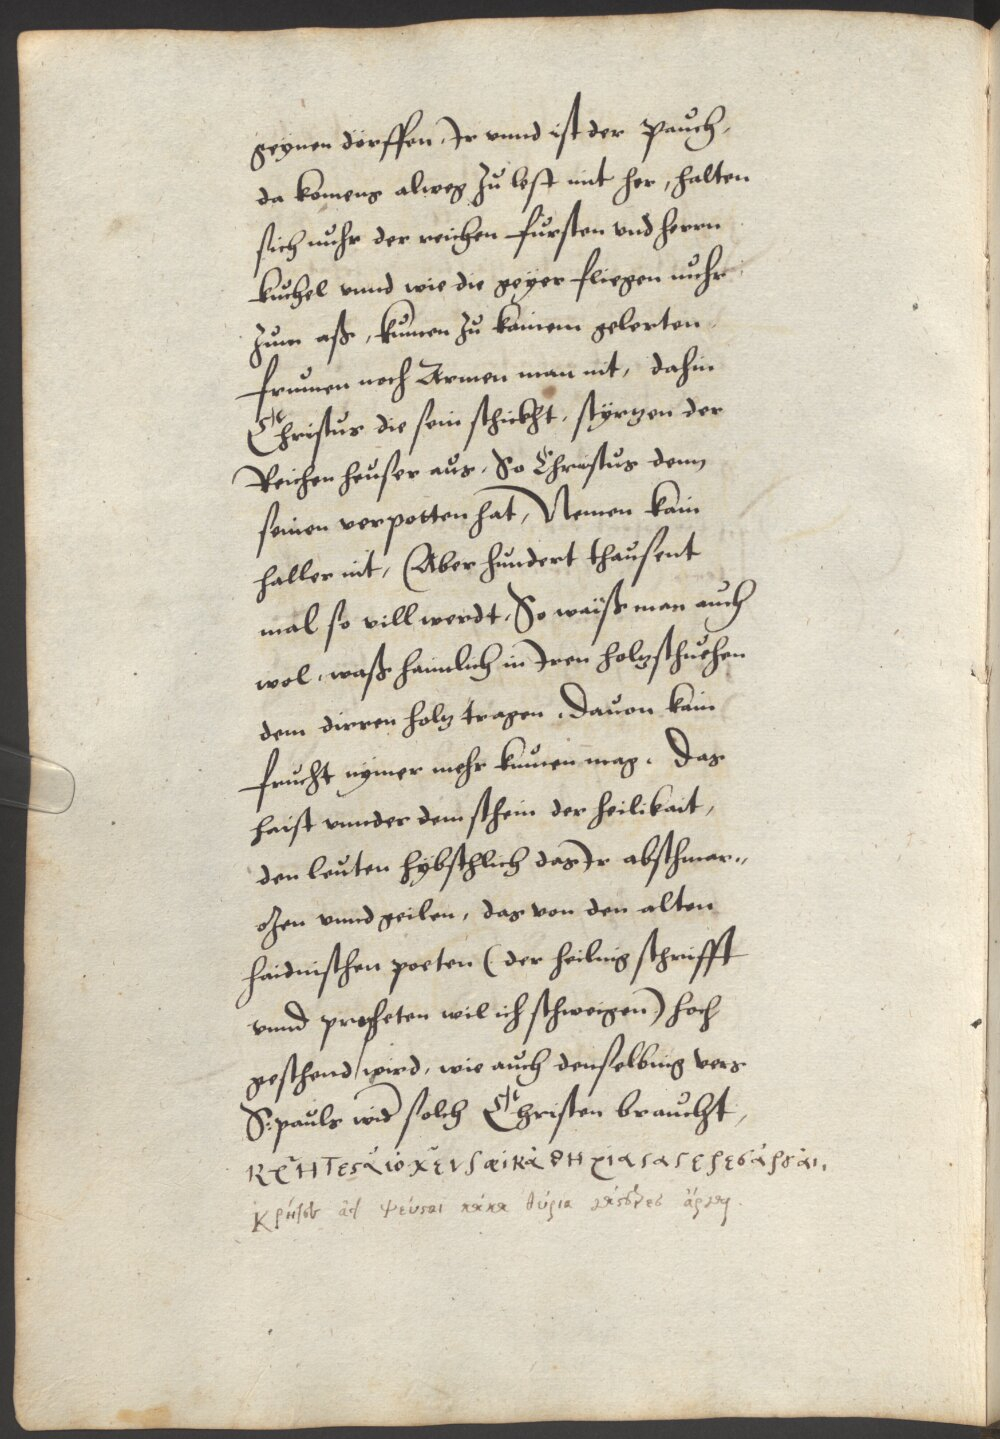 geynen dörffen, Jr vnnd ist der pauch,
da komens alweg zu lest mit her, halten
sich nuhr der reichen fursten vnd herrn
kuchel vnnd wie die geyer fliegen nuhr
zum aß, kumen zu kainem gelerten
frumen noch Armen man nit, dahin
Christus die sein schickht, styrgen der
Reichen heuser aus, So Christus denn
seinen verpotten hat, Nemen kain
haller nit, (Aber hundert thausent
mal so vill werdt, So waiß man auch
wol, waß haimlich in Jren holtzschuehen
dem dirren holtz tragen, Dauon kain
frucht nymer mehr kumen mag. Das
haist vnnder dem schein der heilikait,
den leuten hybschlich das Jr abschmar„
ozen vnnd geilen, das von den alten
haidnischen poeten (der heiling schrifft
vnnd propheten wil ich schweigen) hoch
geschend wird, wie auch denselbing vers
S: pauls wid solch Christen braucht,
Κρῆτες
Κρῆτες ἀεὶ ψεύσται κακα θύρια γάστερες ἀργαι